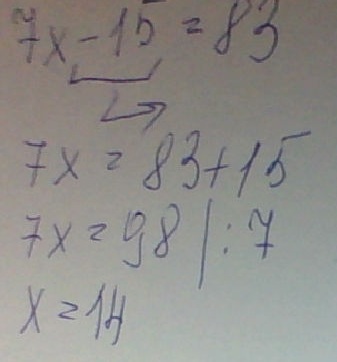 7x - 15 = 83
7x = 83 + 15
7x = 98 | : 7
x = 14